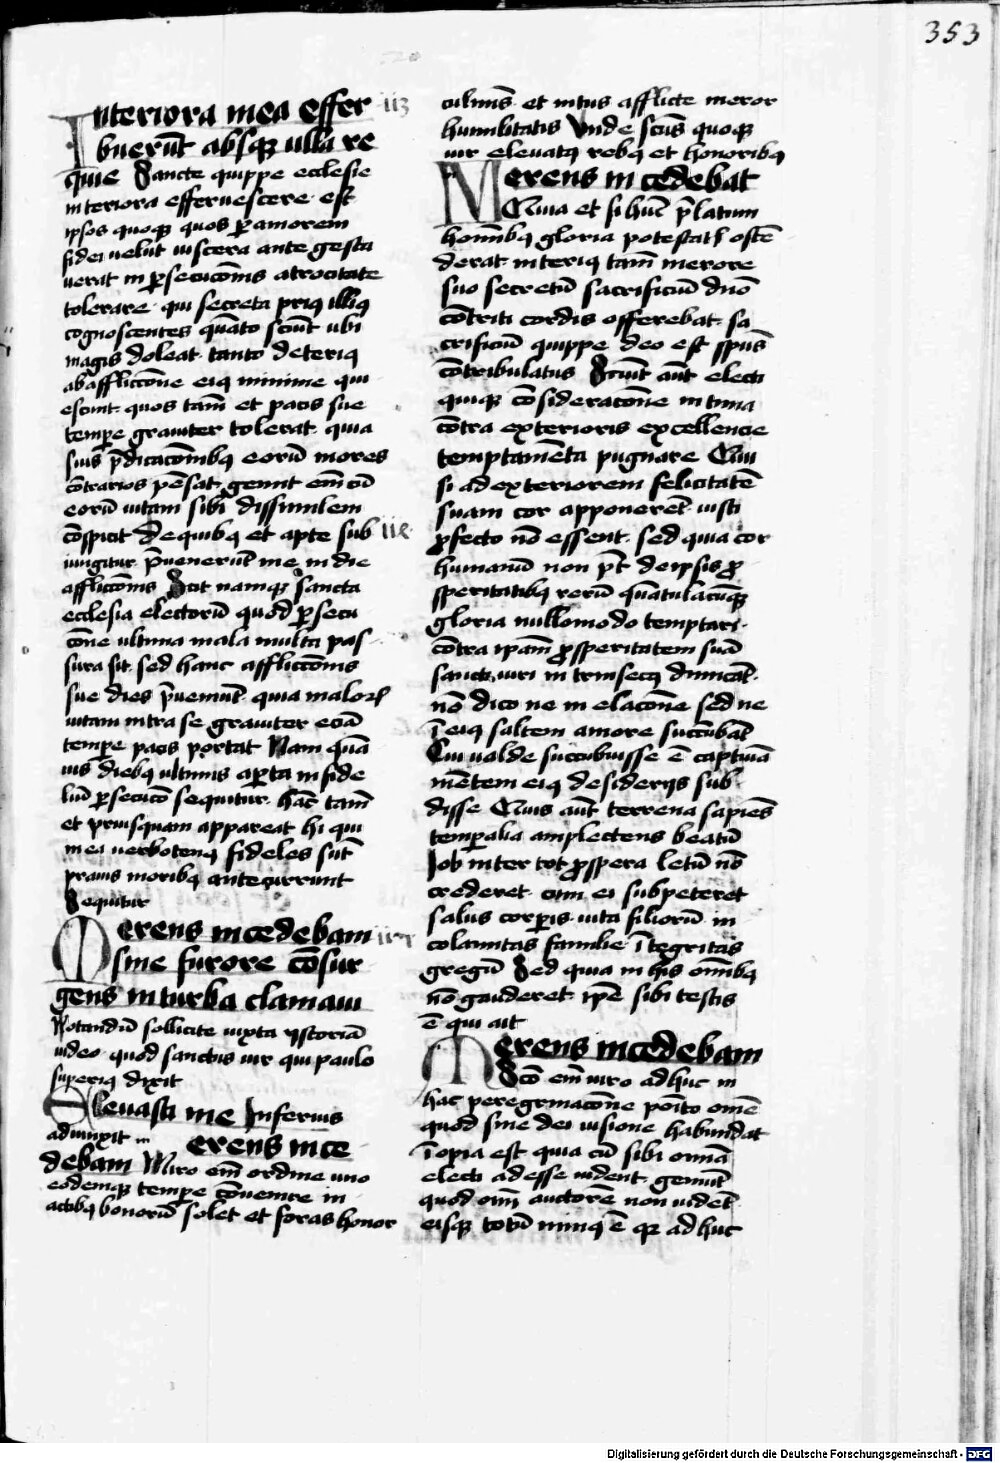 353
Interiora mea effer
buerūt absqꝫ ulla re
quie Sancte quippe ecclesie
interiora efferuescere est
ipsos quoqꝫ quos ꝑ amorem
fidei uelut uiscera ante gesta
uerat in ꝑsecucōnis atrocitate
tolerare qui secreta priꝰ illiꝰ
cognoscentes quāto sciūt ubi
magis doleat tanto deteriꝰ
ab afflictōne eiꝰ minime qui
escunt quos tam̄ et pacis sue
tempe grauiter tolerat quia
suis p̄dicacōnibꝰ eorū mores
cōtrarios pēsat gemit em̄ cū
eorū uitam sibi dissimilem
cōspicit De quibꝰ et apte sub
iungitur p̄uenerūt me in die
afflictōnis Scit namqꝫ sancta
ecclesia electorū quod ꝑsecu
cōne ultima mala multa pas
sura sit sed hanc afflictōnis
sue dies p̄ueniūt quia maloꝝ
uitam intra se grauiter eciā
tempe pacis portat Nam quā
uis diebꝰ ultimis aꝑta infide
liū ꝑsecucō sequitur hāc tam̄
et priusquam appareat hi qui
in ea uerbotenꝰ fideles sūt
prauis moribꝰ antecurrunt
Sequitur
Merens incedebam
sine furore cōsur
gens in turba clamaui
Notandū sollicite iuxta ystoriā
uideo quod sanctus uir qui paulo
superiꝰ dixit
Eleuasti me Inferius
adiunxit merens ince
debam Miro em̄ ordine uno
eodemqꝫ tempe cōuenire in
actibꝰ bonorū solet et foras honor
culmīs et intus afflicte meror
humilitatis Vnde scūs quoqꝫ
uir eleuatꝰ rebꝰ et honoribꝰ
Merens incedebat
Quia et si hūc p̄latum
hominibꝰ gloria potestatꝭ ostē
derat interiꝰ tam̄ merore
suo secretū sacrificiū dn̄o
cōtriti cordis offerebat sa
crificiū quippe deo est spūs
cōtribulatus Sciūt aūt electi
quiqꝫ cōsideracōne intima
cōtra exterioris excellencie
temptamēta pugnare Qui
si ad exteriorem felicitatē
suam cor apponerēt iusti
ꝓfecto nō essent sed quia cor
humanū non p̄t de ipsis ꝓ
speritatibꝰ rerū quātulacūqꝫ
gloria nullomodo temptari
cōtra ipam̄ ꝓsperitatem suā
sancti uiri intrinsecꝰ dimicāt
nō dico ne in elacōne sed ne
ī eiꝰ saltem amore succūbāt
Cui ualde succubuisse ē captiuā
mētem eiꝰ desiderijs sub
disse Quis aūt terrena sapiēs
temporalia amplectens beatū
Job inter tot ꝓspera letū nō
crederet cum ei subpeteret
salus corꝑis uita filiorū in
columitas familie ītegritas
gregū Sed quia in his omībꝰ
nō gauderet ipē sibi testis
ē qui ait
Merens incedebam
Scō em̄ uiro adhuc in
hac peregrinacōne posito omē
quod sine dei uisione habundat
īopia est quia cū sibi omīa
electi adesse uidēt gemūt
quod om̄ auctorē non uidēt
eisqꝫ totū minꝰ ē qꝛ adhuc
Digitalisierung gefördert durch die Deutsche Forschungsgemeinschaft - DFG